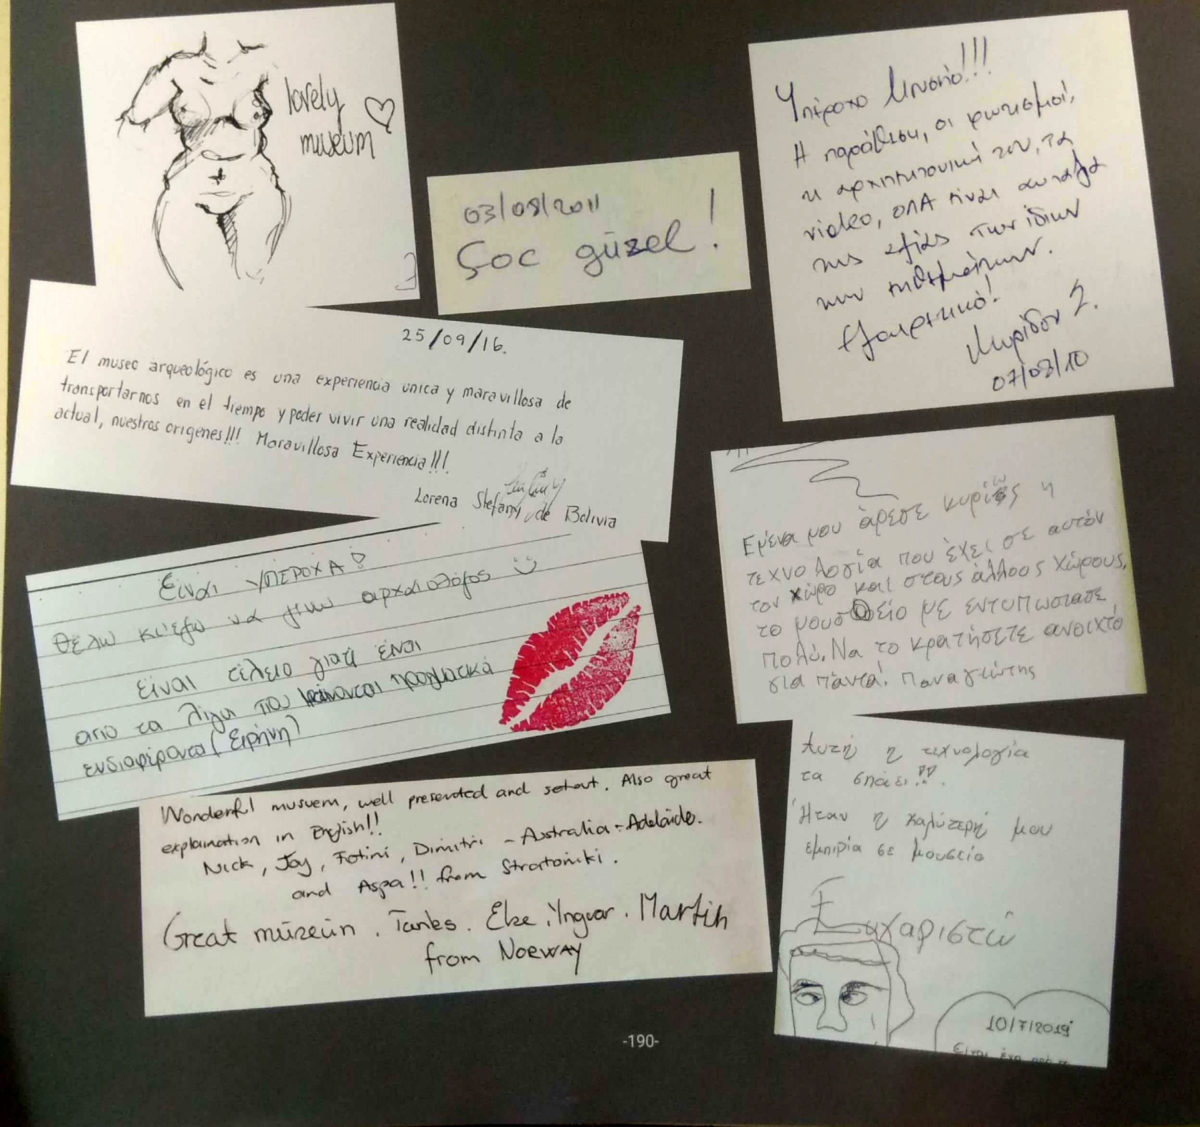 lovely
museum
03/08/2011
Çoc güzel!
Υπέροχο Μουσείο!!!
Η παράθεση, οι φωτισμοί,
η αρχιτεκτονική του, τα
video, όλα είναι αντάξια
της αξίας των ίδιων
των εκθεμάτων.
Εξαιρετικό!
07/08/10
25/09/16.
El museo arqueológico es una experiencia unica y maravillosa de
transportarnos en el tiempo y poder vivir una realidad distinta a la
actual, nuestros origenes!!! Maravillosa Experiencia!!!
Lorena Stefany de Bolivia
Εμένα μου άρεσε κυρίως η
τεχνολογία που έχει σε αυτόν
τον χώρο και στους άλλους χώρους,
το μουσείο με εντυπωσίασε
πολύ. Να το κρατήσετε ανοιχτό
για πάντα! Παναγιώτης
Είναι ΥΠΕΡΟΧΑ!
Θέλω κι εγώ να γίνω αρχαιολόγος
είναι τέλειο γιατί είναι
από τα λίγα που φαίνονται πραγματικά
ενδιαφέροντα (Ειρήνη)
Wonderful musuem, well presented and setout. Also great
explanation in English!!
Nick, Joy, Fotini, Dimitri - Australia - Adelaide.
and Aspa!! from Stratoniki.
Great müzeün. Tanks. Else. Yngvar. Martin
from Norway
Αυτή η τεχνολογία
τα σπάει!!
Ήταν η καλύτερή μου
εμπιρία σε μουσείο
Ευχαριστώ
10/7/2019
Είναι
-190-